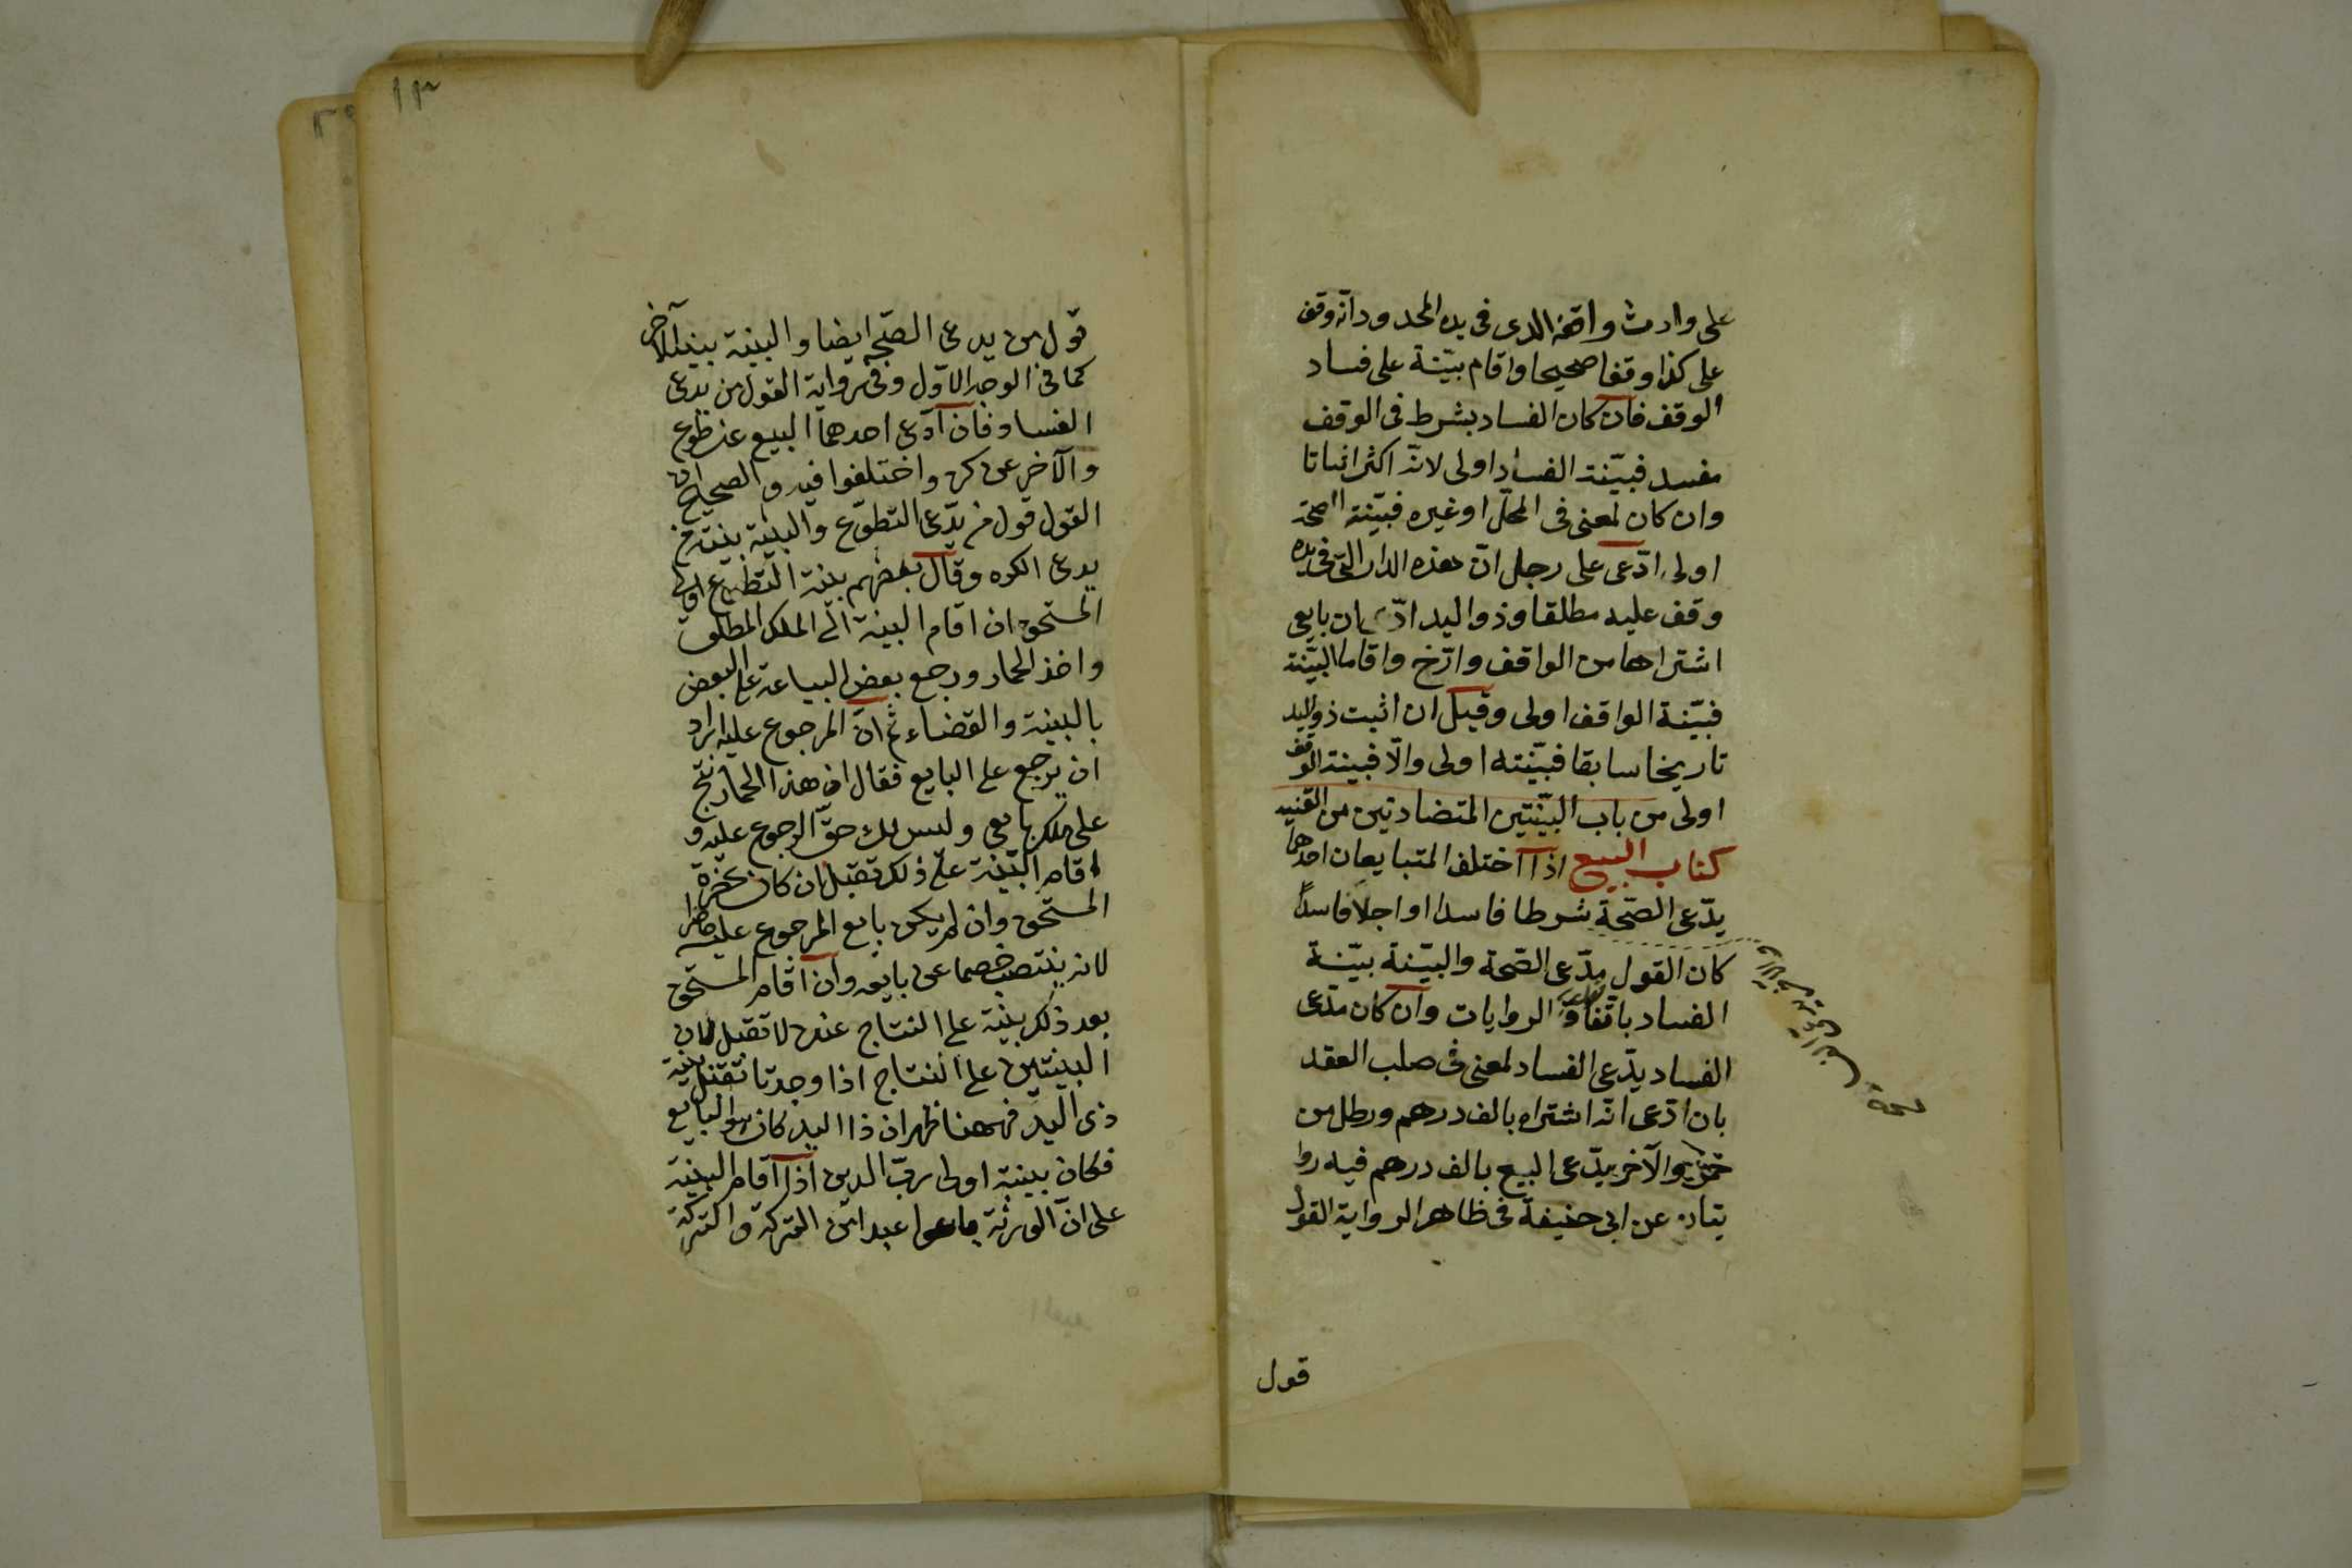 على وارث واقفه الذى فى يده المحدود انّه وقف
على كذا وقفا صحيحا واقام بيّنة على فساد
الوقف فان كان الفساد بشرط فى الوقف
مفسد فبيّنة الفساد اولى لانّه اكثر اثباتا
وان كان لمعنى فى المحلّ او غيره فبيّنة الصحّة
اولى ادّعى على رجل انّ هذه الدار التى فى يده
وقف عليه مطلقا وذو اليد ادّعى ان بايعى
اشتراها من الواقف وارّخ واقاما البيّنة
فبيّنة الواقف اولى وقيل ان اثبت ذو اليد
تاريخا سابقا فبيّنته اولى والّا فبينة الوقف
اولى من باب البيّنتين المتضادتين من القنيه
كتاب البيع اذا اختلف المتبايعان احدهما
يدّعى الصّحّة شرطا فاسدا او اجلًا فاسدًا
كان القول مدّعى الصّحة والبيّنة بيّنة
الفساد باتفاق الروايات وان كان مدّعى
الفساد يدّعى الفساد لمعنى فى صلب العقد
بان ادّعى انّه اشتراه بالف درهم ورطل من
خمر والآخر يدّعى البيع بالف درهم فيه روا
يتان عن ابى حنيفة فى ظاهر الرواية القول
قول
١٣
قول من يدعى الصّحة ايضا والبينة بينة الآخر
كما فى الوجه الاوّل وفى رواية القول من يدعى
الفساد فان ادّعى احدهما البيع عن طوع
والآخر عن كره واختلفوا فيه والصحيح ان
القول قول من يدّعى التطوّع والبينة بينة من
يدعى الكره وقال بعضهم بينة التطوع اولى
المستحق ان اقام البينة الى الملك المطلق
واخذ الحمار ورجع بعض البياعة على البعض
بالبينة والقضاء ثم انّ المرجوع عليه اراد
ان يرجع على البايع فقال ان هذا الحمار نتج
على ملك بايعى وليس لك حقّ الرجوع عليه و
اقام البيّنة على ذلك تقبل ان كان بحضرة
المستحق وان لم يكن بايع المرجوع عليه حاضرا
لانه ينتصب خصما عن بايعه وان اقام المستحق
بعد ذلك بينة على النتاج عنده لا تقبل لان
البينتين على النتاج اذا وجدتا تقبل بينة
ذى اليد فههنا ظهر ان ذا اليد كان هو البايع
فكان بينته اولى ربّ الدين اذا اقام البينة
على انّ الورثة باعوا عبدا من التركة والتركة